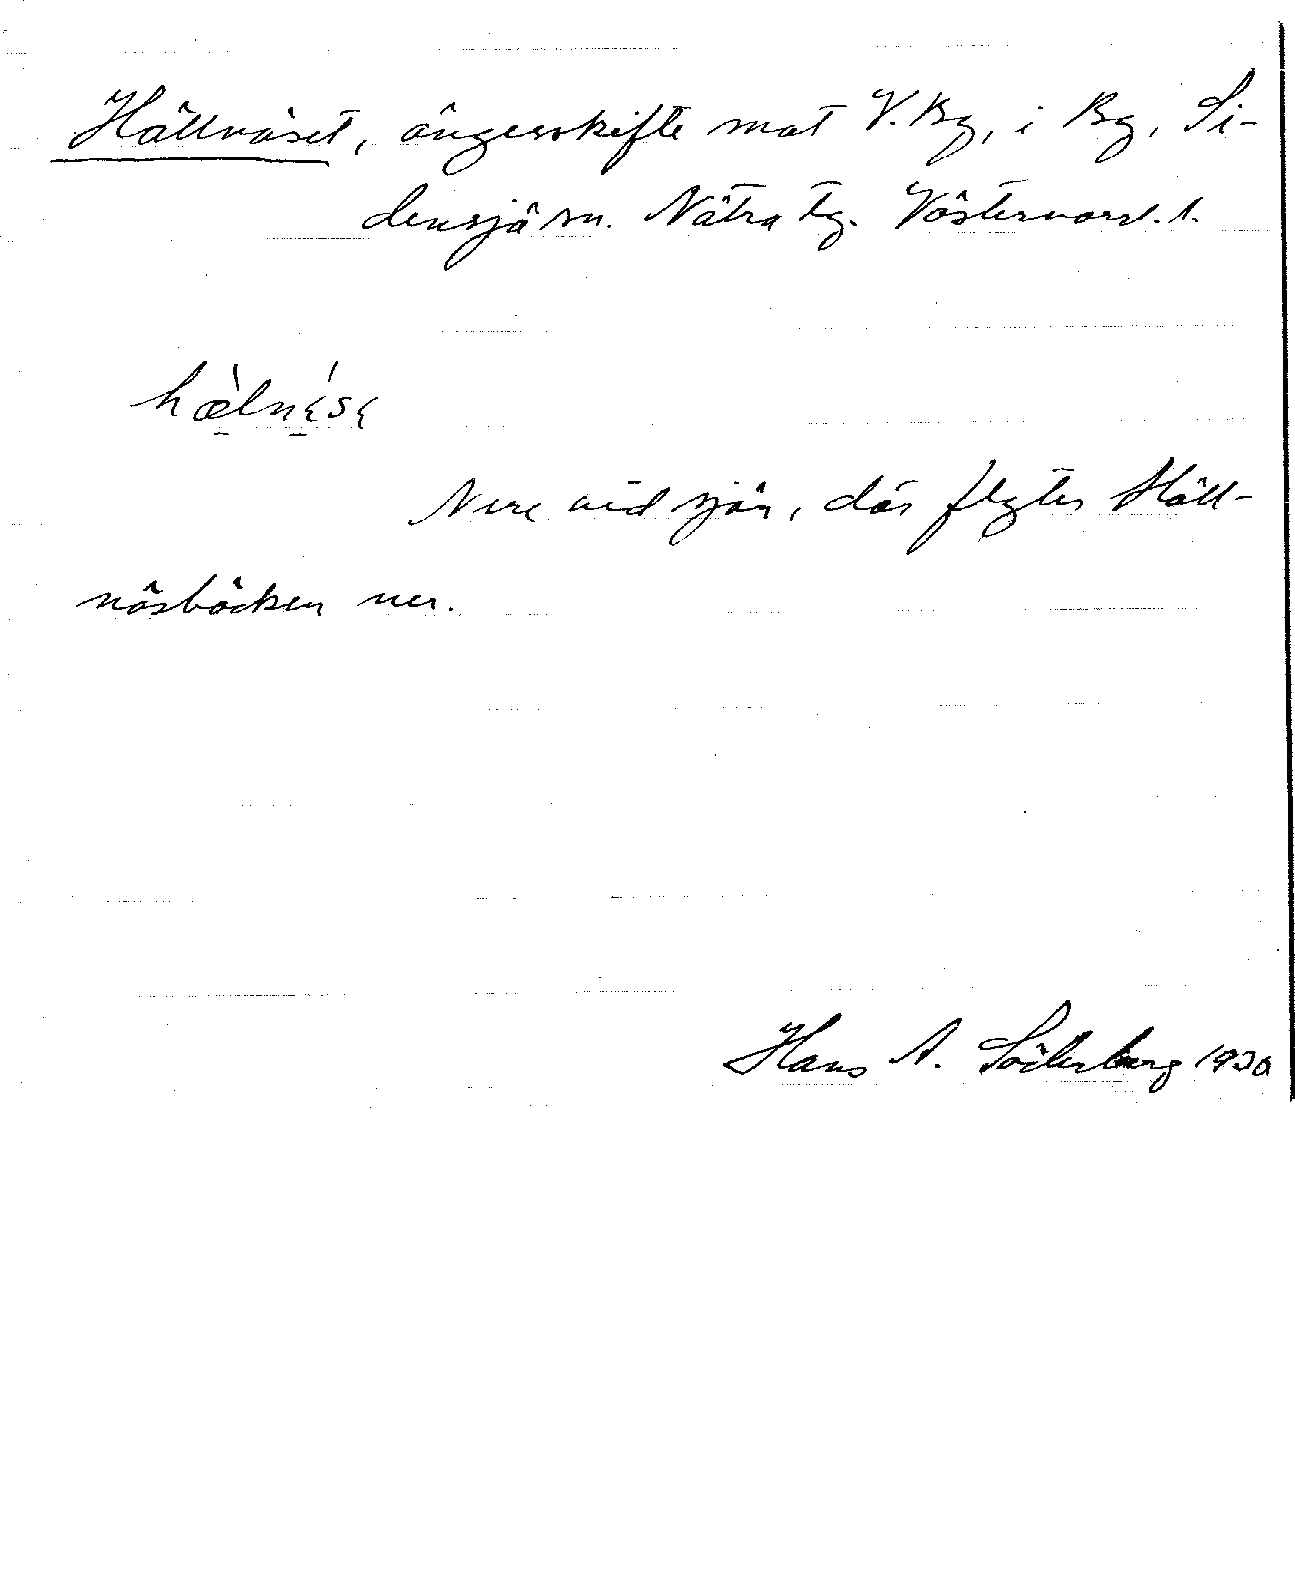 Hällnäset, ängesskifte mot V. By, i By, Si-
densjö sn. Nätra tg. Västernorrl. l.
hæ̀lnɛ́sɛ
Nere vid sjön, där flyter Häll-
näsbäcken ner.
Hans A. Söderberg 1930